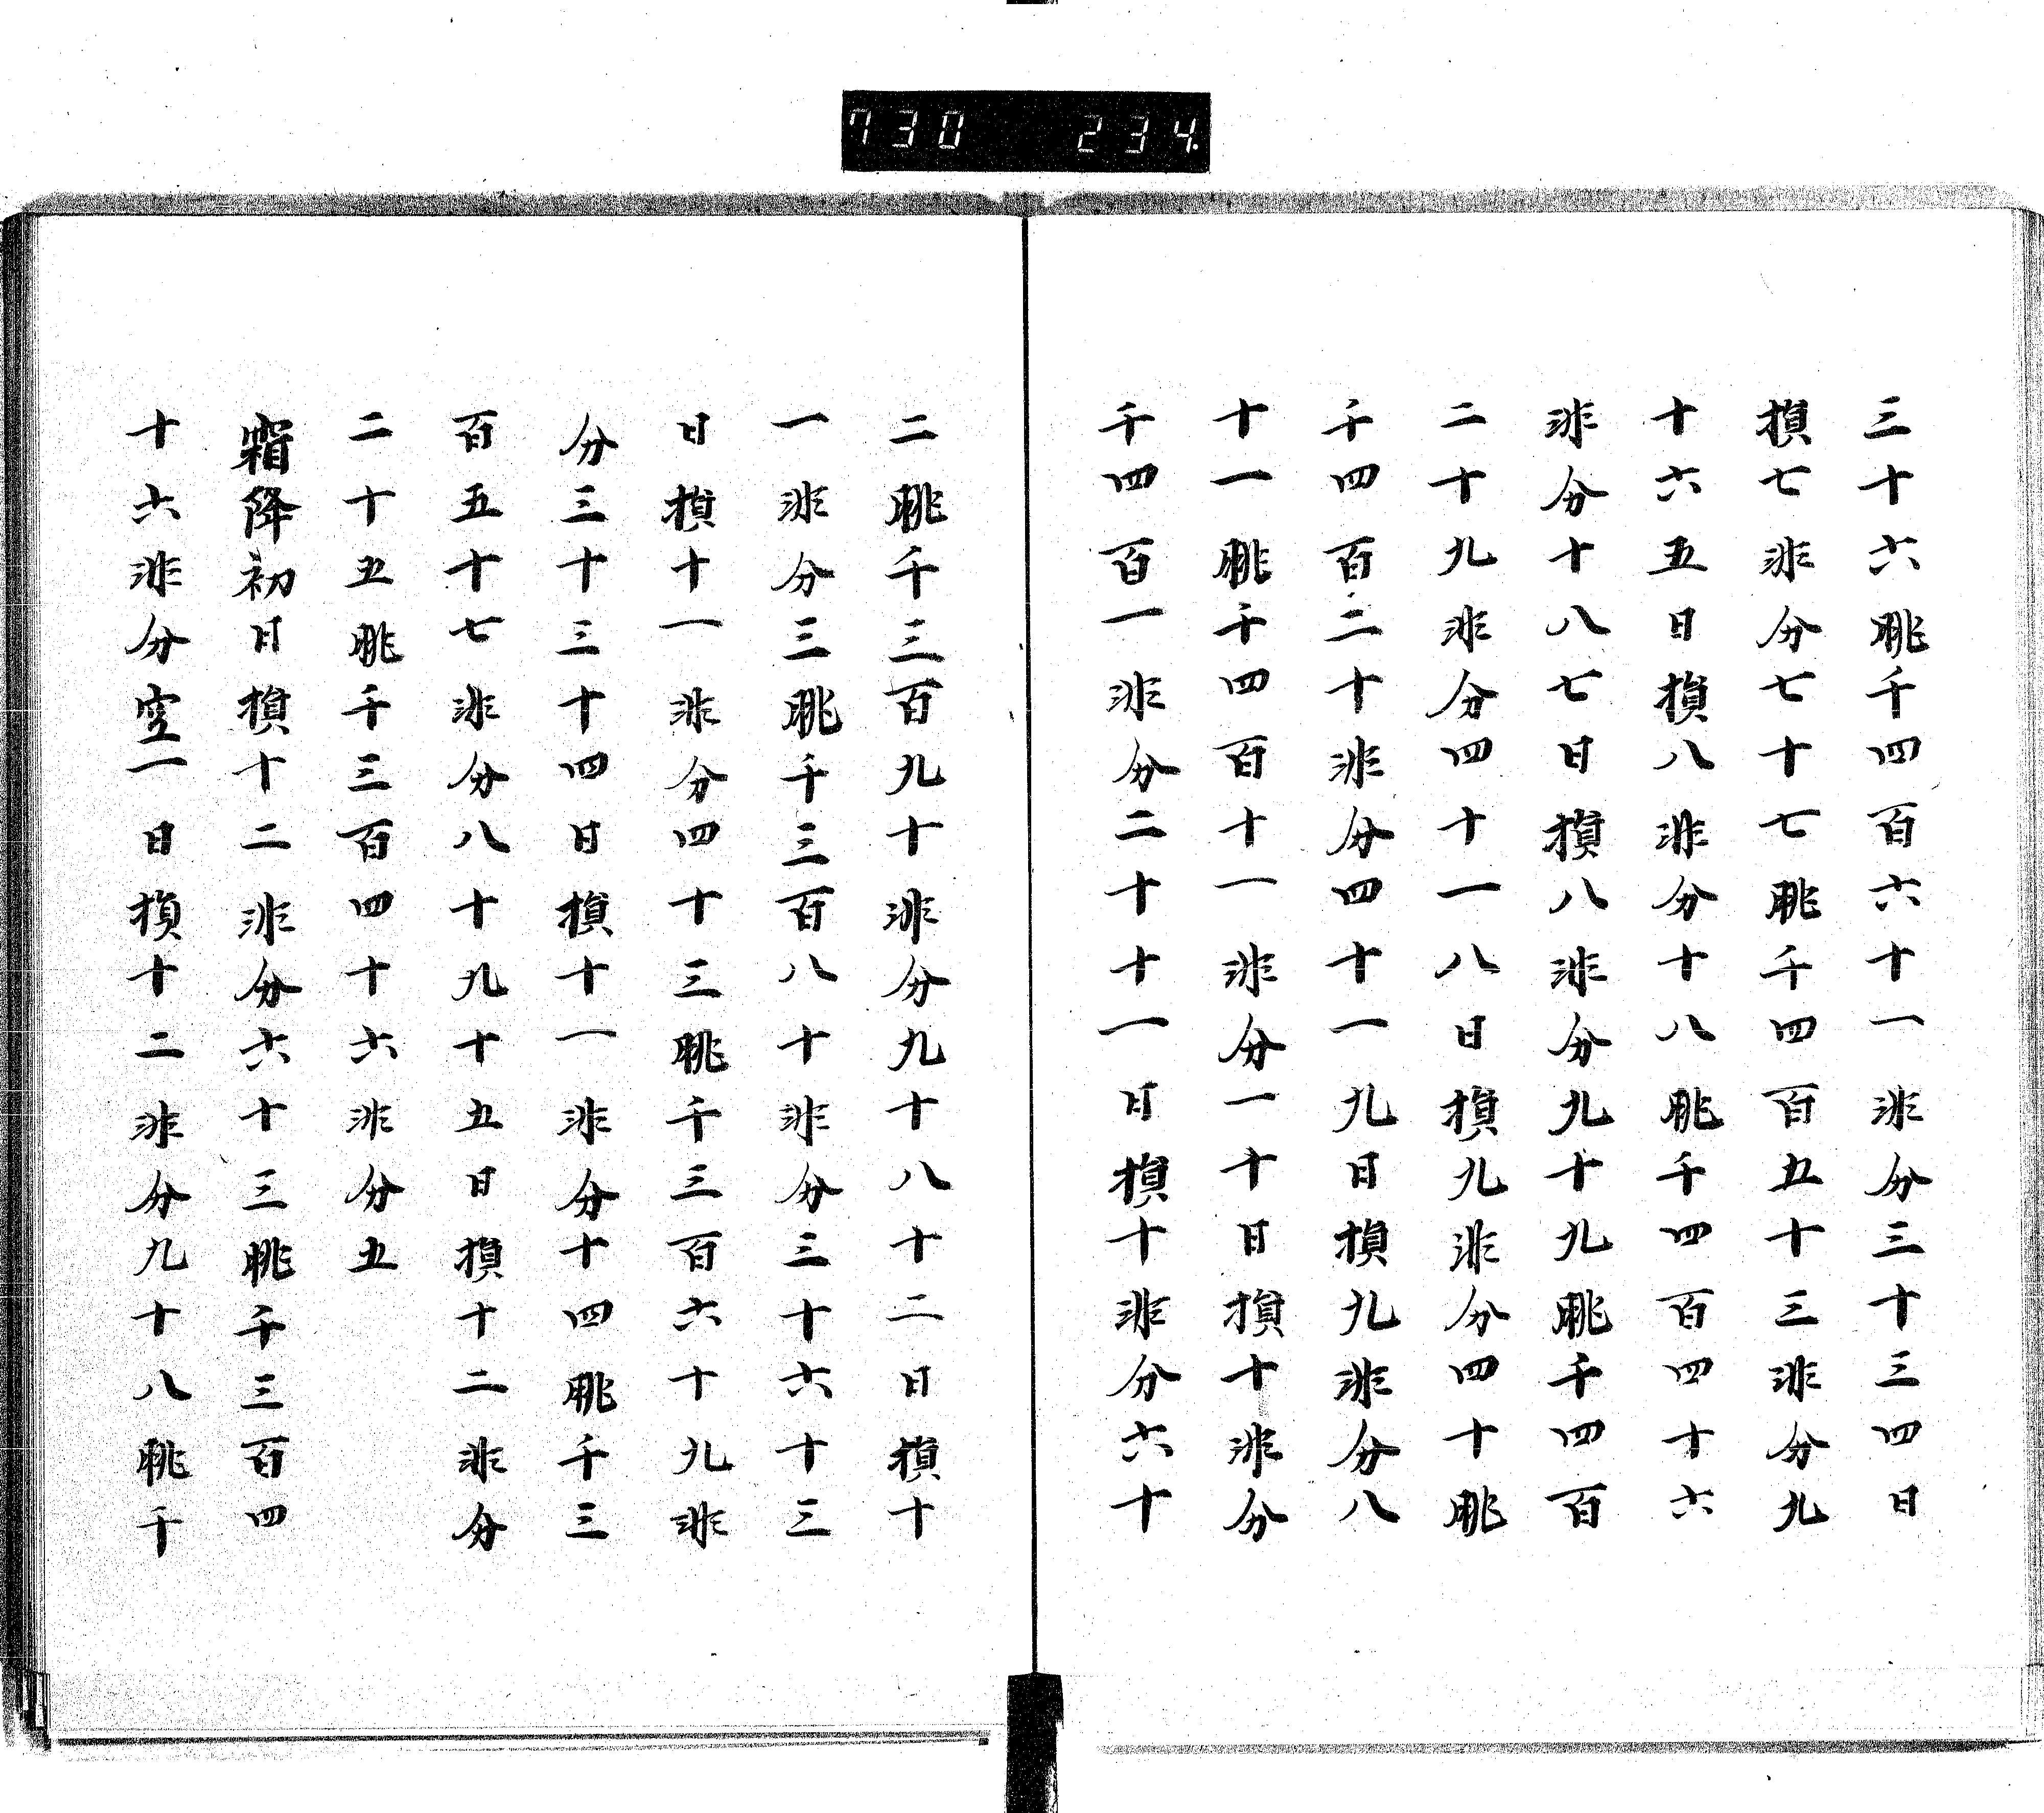 730 234
三十六朓千四百六十一非分三十三四日
損七非分七十七朓千四百五十三非分九
十六五日損八非分十八朓千四百四十六
非分十八七日損八非分九十九朓千四百
二十九非分四十一八日損九非分四十朓
千四百二十非分四十一九日損九非分八
十一朓千四百十一非分一十日損十非分
千四百一非分二十十一日損十非分六十
二朓千三百九十非分九十八十二日損十
一非分三朓千三百八十非分三十六十三
日損十一非分四十三朓千三百六十九非
分三十三十四日損十一非分十四朓千三
百五十七非分八十九十五日損十二非分
二十五朓千三百四十六非分五
霜降初日損十二非分六十三朓千三百四
十六非分空一日損十二非分九十八朓千